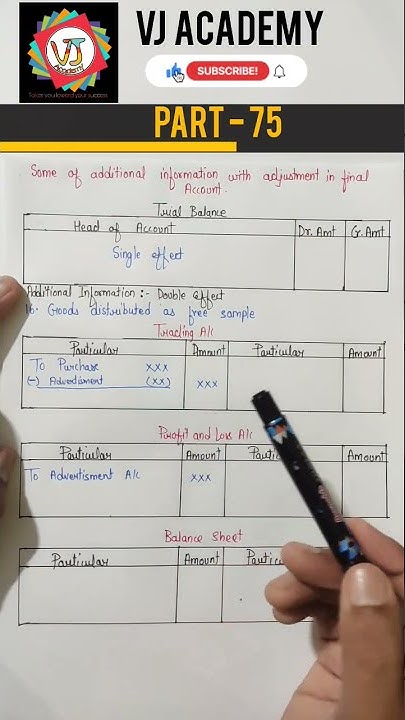 VJ
Academy
VJ ACADEMY
SUBSCRIBE!
PART - 75
Some of additional information with adjustment in final
Account.
Trial Balance
Head of Account Dr. Amt Cr. Amt
Single effect
Additional Information :- Double effect
16. Goods distributed as free sample
Trading A/c
Particular Amount Particular Amount
To Purchase xxx
(-) Advertisment (xx) xxx
Profit and Loss A/c
Particular Amount Amount
To Advertisment A/c xxx
Balance Sheet
Particular Amount